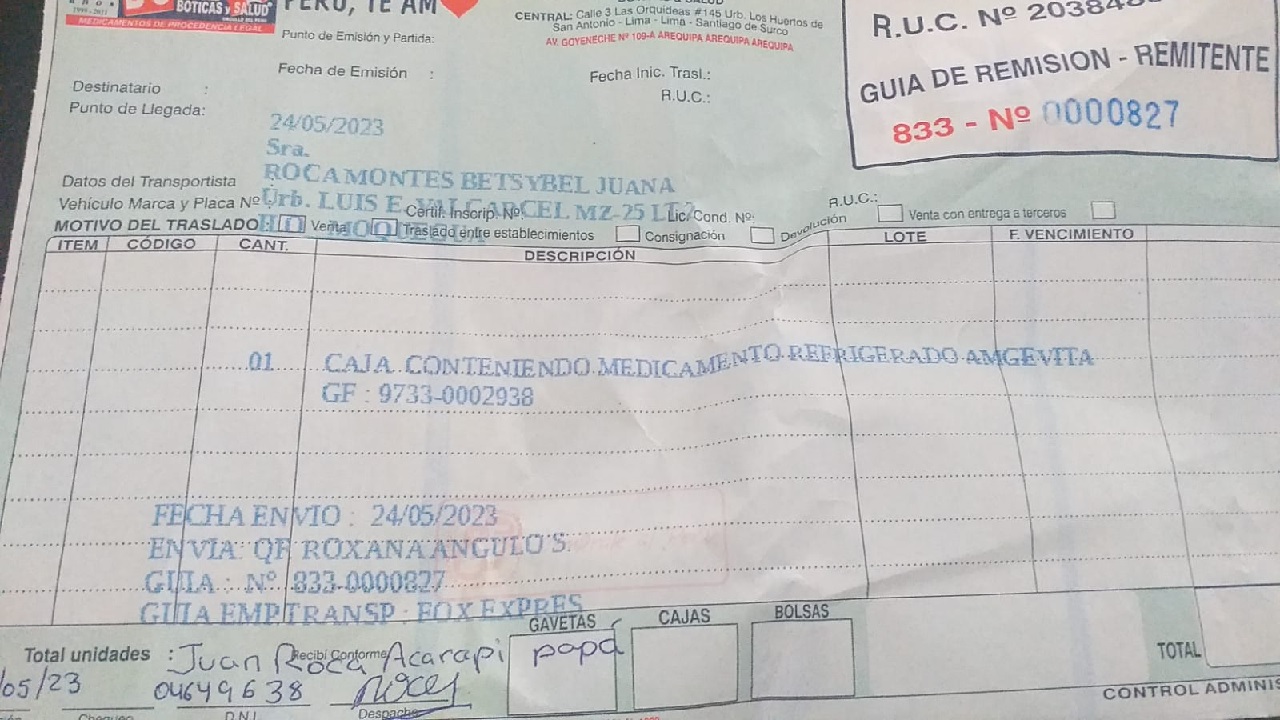 BOTICAS y SALUD
MEDICAMENTOS DE PROCEDENCIA LEGAL
PERÚ, TE AM
CENTRAL: Calle 3 Las Orquideas #145 Urb. Los Huertos de
San Antonio - Lima - Lima - Santiago de Surco
AV. GOYENECHE Nº 109-A AREQUIPA AREQUIPA AREQUIPA
R.U.C. Nº 20384
GUIA DE REMISION - REMITENTE
833 - Nº 0000827
Punto de Emisión y Partida:
Fecha de Emisión :
Fecha Inic. Trasl.:
Destinatario :
R.U.C.:
Punto de Llegada:
24/05/2023
Sra.
ROCA MONTES BETSYBEL JUANA
Datos del Transportista
Urb. LUIS E. VALCARCEL MZ-25
Vehículo Marca y Placa Nº
Certif. Inscrip. Nº
Lic/Cond. Nº:
R.U.C.:
MOTIVO DEL TRASLADO
Venta
Traslado entre establecimientos
Consignación
Devolución
Venta con entrega a terceros
ITEM CÓDIGO CANT. DESCRIPCIÓN LOTE F. VENCIMIENTO
01 CAJA CONTENIENDO MEDICAMENTO REFRIGERADO AMGEVITA
GF : 9733-0002938
FECHA ENVIO : 24/05/2023
ENVIA: QF ROXANA ANGULO S.
GUIA : Nº 833-0000827
GUIA EMP TRANSP : FOX EXPRES
GAVETAS CAJAS BOLSAS
Total unidades :
Recibí Conforme
Juan Roca Acarapi papa
TOTAL
/05/23 04649638
CONTROL ADMINIS
Chequeo D.N.I. Despacho